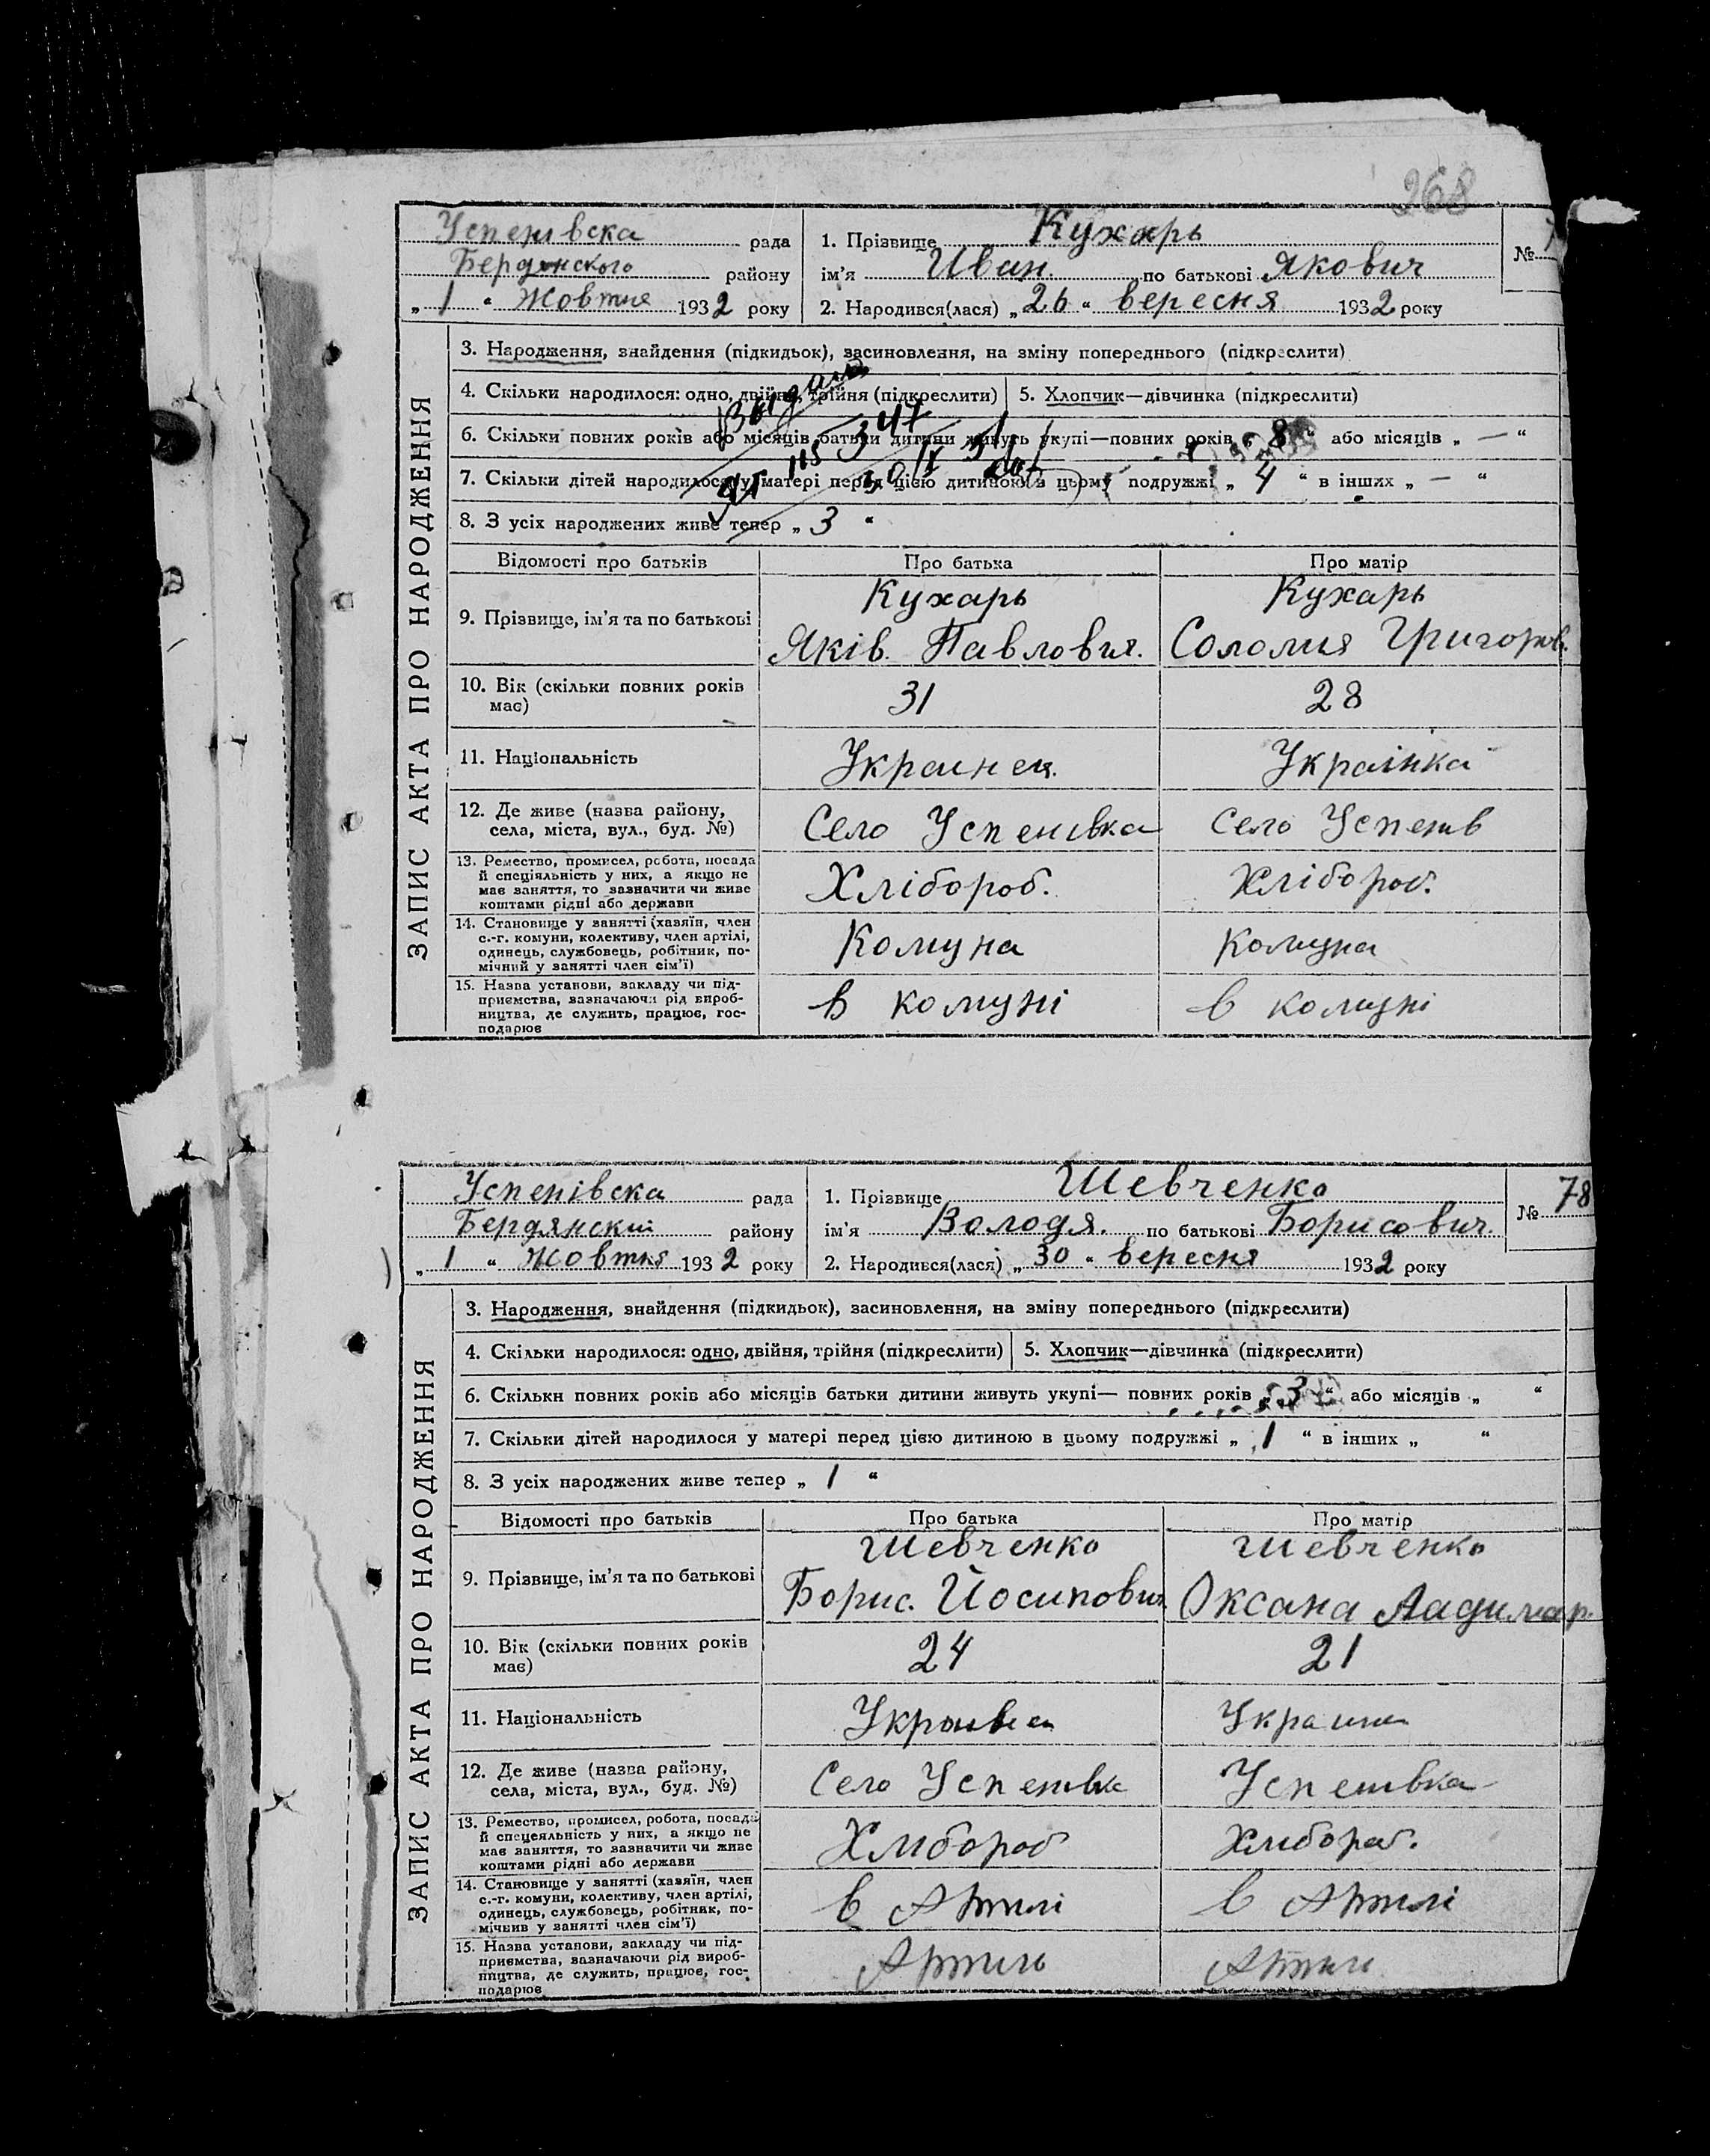 268
Успенівска рада
Бердянского району
„ 1 “ Жовтня 1932 року
1. Прізвище Кухарь
ім’я Иван. по батькові Якович
2. Народився(лася) „ 26 “ вересня 1932 року
№ 7
ЗАПИС АКТА ПРО НАРОДЖЕННЯ
3. Народження, знайдення (підкидьок), засиновлення, на зміну попереднього (підкреслити)
4. Скільки народилося: одно, двійня, трійня (підкреслити)
5. Хлопчик—дівчинка (підкреслити)
6. Скільки повних років або місяців батьки дитини живуть укупі—повних років „ 8 “ або місяців „ — “
7. Скільки дітей народилося у матері перед цією дитиною в цьому подружжі „ 4 “ в інших „ — “
8. З усіх народжених живе тепер „ 3 “
Відомості про батьків
Про батька
Про матір
9. Прізвище, ім’я та по батькові
Кухарь
Яків. Павлович.
Кухарь
Соломия Григоров.
10. Вік (скільки повних років
має)
31
28
11. Національність
Украинец.
Українка
12. Де живе (назва району,
села, міста, вул., буд. №)
Село Успенивка
Село Успенив
13. Ремество, промисел, робота, посада
й спеціяльність у них, а якщо не
має заняття, то зазначити чи живе
коштами рідні або держави
Хлібороб.
Хлібороб.
14. Становище у занятті (хазяїн, член
с.-г. комуни, колективу, член артілі,
одинець, службовець, робітник, по-
мічний у занятті член сім’ї)
Комуна
Комуна
15. Назва установи, закладу чи під-
приємства, зазначаючи рід вироб-
ництва, де служить, працює, гос-
подарює
в комуні
в комуні
Успенівска рада
Бердянский району
„ 1 “ Жовтня 1932 року
1. Прізвище Шевченко
ім’я Володя. по батькові Борисович.
2. Народився(лася) „ 30 “ вересня 1932 року
№ 78
ЗАПИС АКТА ПРО НАРОДЖЕННЯ
3. Народження, знайдення (підкидьок), засиновлення, на зміну попереднього (підкреслити)
4. Скільки народилося: одно, двійня, трійня (підкреслити)
5. Хлопчик—дівчинка (підкреслити)
6. Скільки повних років або місяців батьки дитини живуть укупі— повних років „ 3 “ або місяців „ “
7. Скільки дітей народилося у матері перед цією дитиною в цьому подружжі „ 1 “ в інших „ “
8. З усіх народжених живе тепер „ 1 “
Відомості про батьків
Про батька
Про матір
9. Прізвище, ім’я та по батькові
Шевченко
Борис. Йосипович
Шевченко
Оксана
10. Вік (скільки повних років
має)
24
21
11. Національність
12. Де живе (назва району,
села, міста, вул., буд. №)
Село Успенивка
Успенивка
13. Ремество, промисел, робота, посада
й спецеяльність у них, а якщо не
має заняття, то зазначити чи живе
коштами рідні або держави
Хлибороб
Хлибороб.
14. Становище у занятті (хазяїн, член
с.-г. комуни, колективу, член артілі,
одинець, службовець, робітник, по-
мічнив у занятті член сім’ї)
в Артилі
в Артилі
15. Назва установи, закладу чи під-
приємства, зазначаючи рід вироб-
ництва, де служить, працює, гос-
подарює
Артиль
Артиль